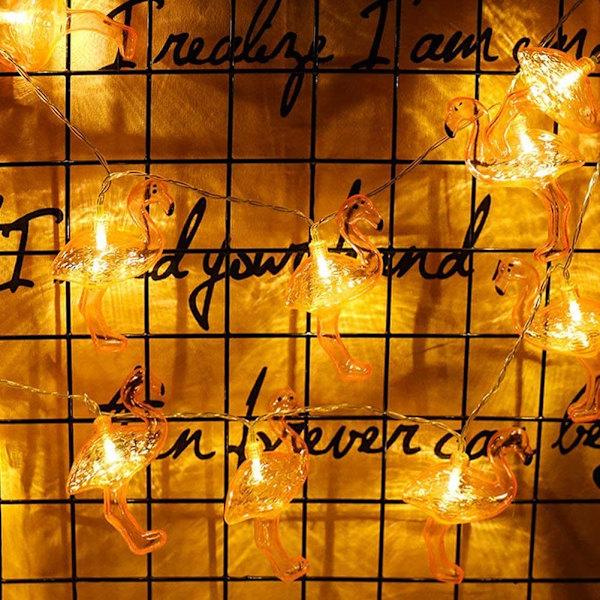 I realize I am
I d your and
n forever can be